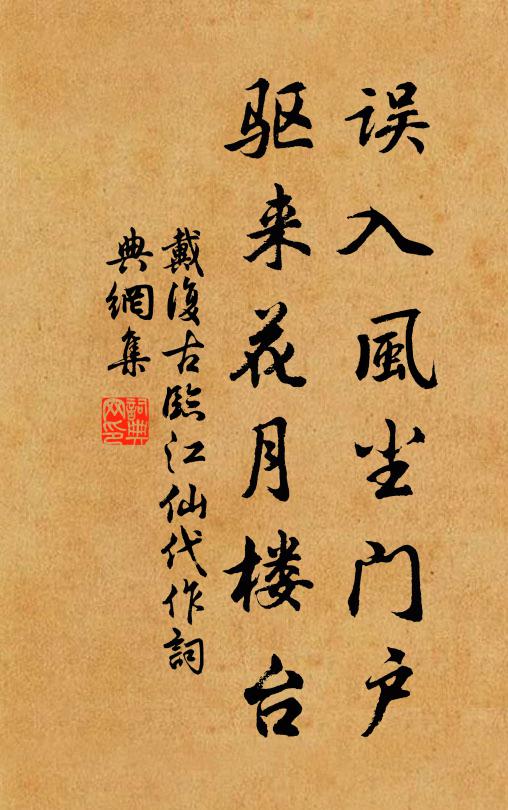 误入風尘门户
驱来花月楼台
戴復古臨江仙代作詞
典網集
詞典
网印